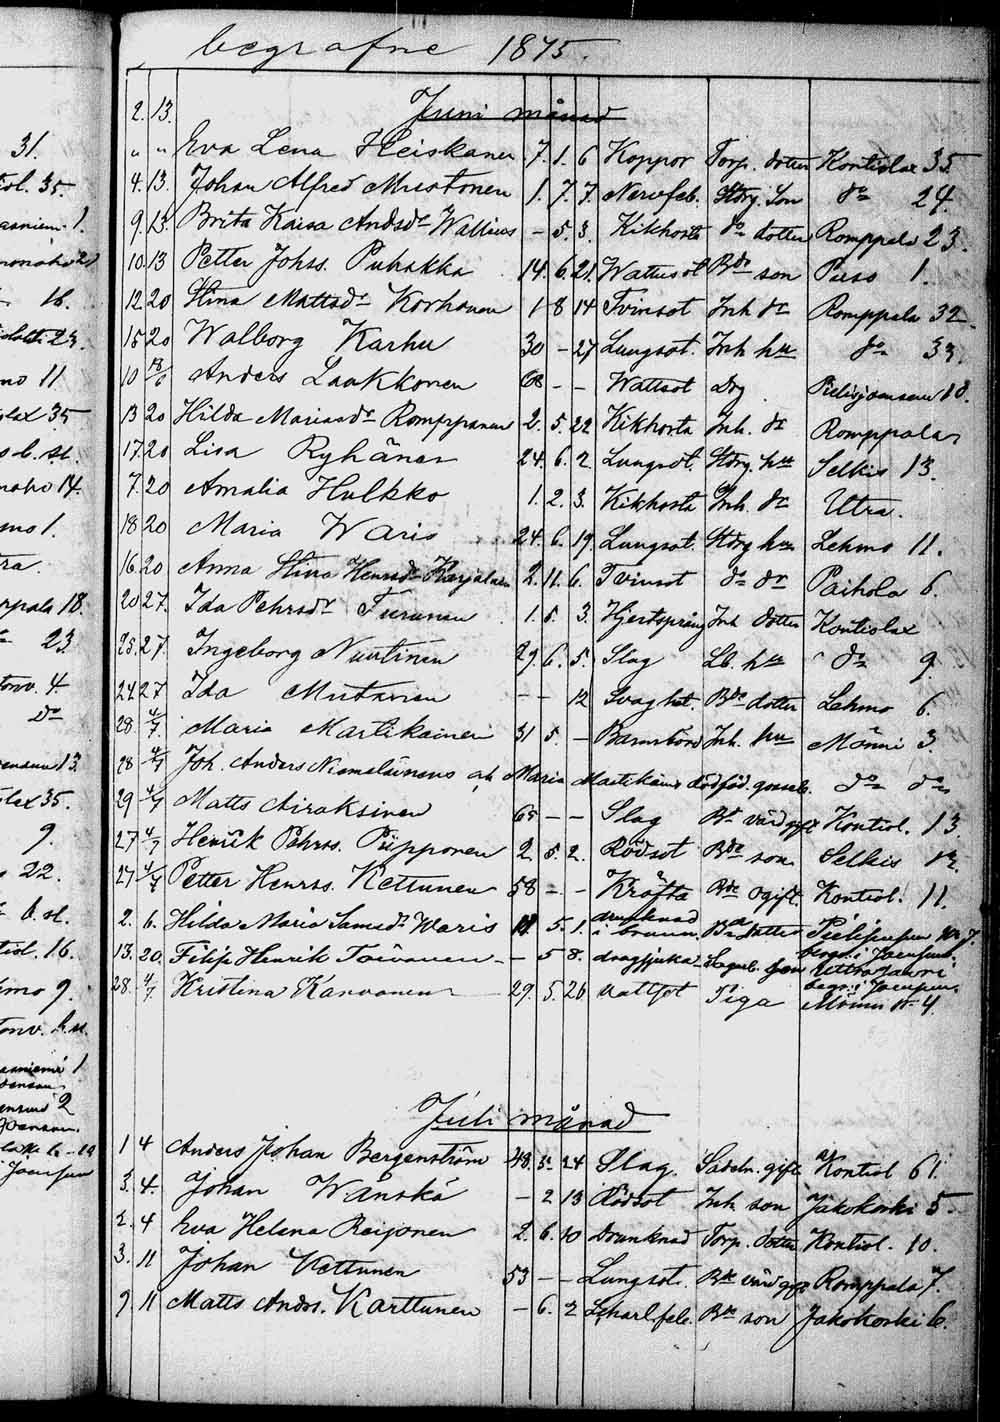 begrafne 1875.
31.
tiol. 35
1.
16.
23.
mo 11
lax 35
b. st.
14.
mo 1.
ra.
18.
23
tonv. 4
do
13.
lax 35.
9.
22.
b. st.
tiol. 16.
mo 9.
tonv. b. st.
1
2
2. 13. Juni månad
" " Eva Lena Heiskanen 7. 1. 6 Koppor Torp. dotter Kontiolax 35
4. 13. Johan Alfred Mustonen 1. 7. 7. Nervfeb. Stbrg. Son do 24.
9. 13. Brita Kaisa Andsdr Wallius – 5. 3. Kikhosta do dotter Romppala 23.
10. 13 Petter Johss. Puhakka 14. 6. 21. Wattusot Bde son Puso 1.
12 20 Stina Mattsdr Korhonen 1 8 14 Tvinsot Inh dr Romppala 32
15 20 Walborg Karhu 30 – 27 Lungsot. Inh hu do 33.
10 13/6 Anders Laakkonen 68 – – Wattsot Drg
13 20 Hilda Mariasdr Romppanen 2. 5. 22 Kikhosta Inh. dr Romppala
17. 20 Lisa Ryhänen 24. 6. 2. Lungsot. Stbrg. hu Selkis 13.
7. 20 Amalia Hulkko 1. 2. 3. Kikhosta Inh. dr Utra.
18 20 Maria Waris 24. 6. 19. Lungsot. Stbrg hu Lehmo 11.
16. 20 Anna Stina Henrsdr Karjalainen 2. 11. 6. Tvinsot do dr Paihola 6.
20 27. Ida Pehrsdr Turunen 1. 5. 3. Hjertsprång Inh dotter Kontiolax
25. 27. Ingeborg Nuutinen 29. 6. 5. Slag Lb. hu do 9.
24 27 Ida Mutanen – – 12 Svaghet. Bde dotter Lehmo 6.
28. 4/7. Maria Martikainen 31 5. – Barnsbörd Inh. hu Mönni 3.
28 4/7 Joh. Anders Niemeläinens o h Maria Martikainens dödföd. gosseb. do do
29 4/7 Matts Airaksinen 65 – – Slag Bde värd gift Kontiol. 13
27 4/7 Henrik Pehrss. Piipponen 2. 5. 2. Rödsot Bde son Selkis
27 4/7 Petter Henrss. Kettunen 58 – – Kräfta Bde ogift. Kontiol. 11.
2. 6. Hilda Maria Samsdr Waris 11 5. 1. drunknad i brunn. Bde dotter
13. 20. Filip Henrik Toivanen – 5 8. dragsjuka
begr. i Joensuu.
28. 4/7. Kristina Karvonen 29. 5. 26 vattsot Piga Mönni No 4.
begr. i Joensuu.
Juli månad
1 4 Anders Johan Bergenström 48. 5. 24 Slag. Sadelm. gift Kontiol 61.
3. 4. Johan Wänskä – 2 13 Rödsot Inh son Jakokoski 5
2. 4 Eva Helena Reijonen 2. 6. 10 Drunknad Torp. dotter Kontiol. 10.
3. 11 Johan Kettunen 53 – – Lungsot. Bde värd gift Romppala 7.
9 11 Matts Andrs. Karttunen – 6. 2 Scharl. feb. Bde son Jakokoski 6.